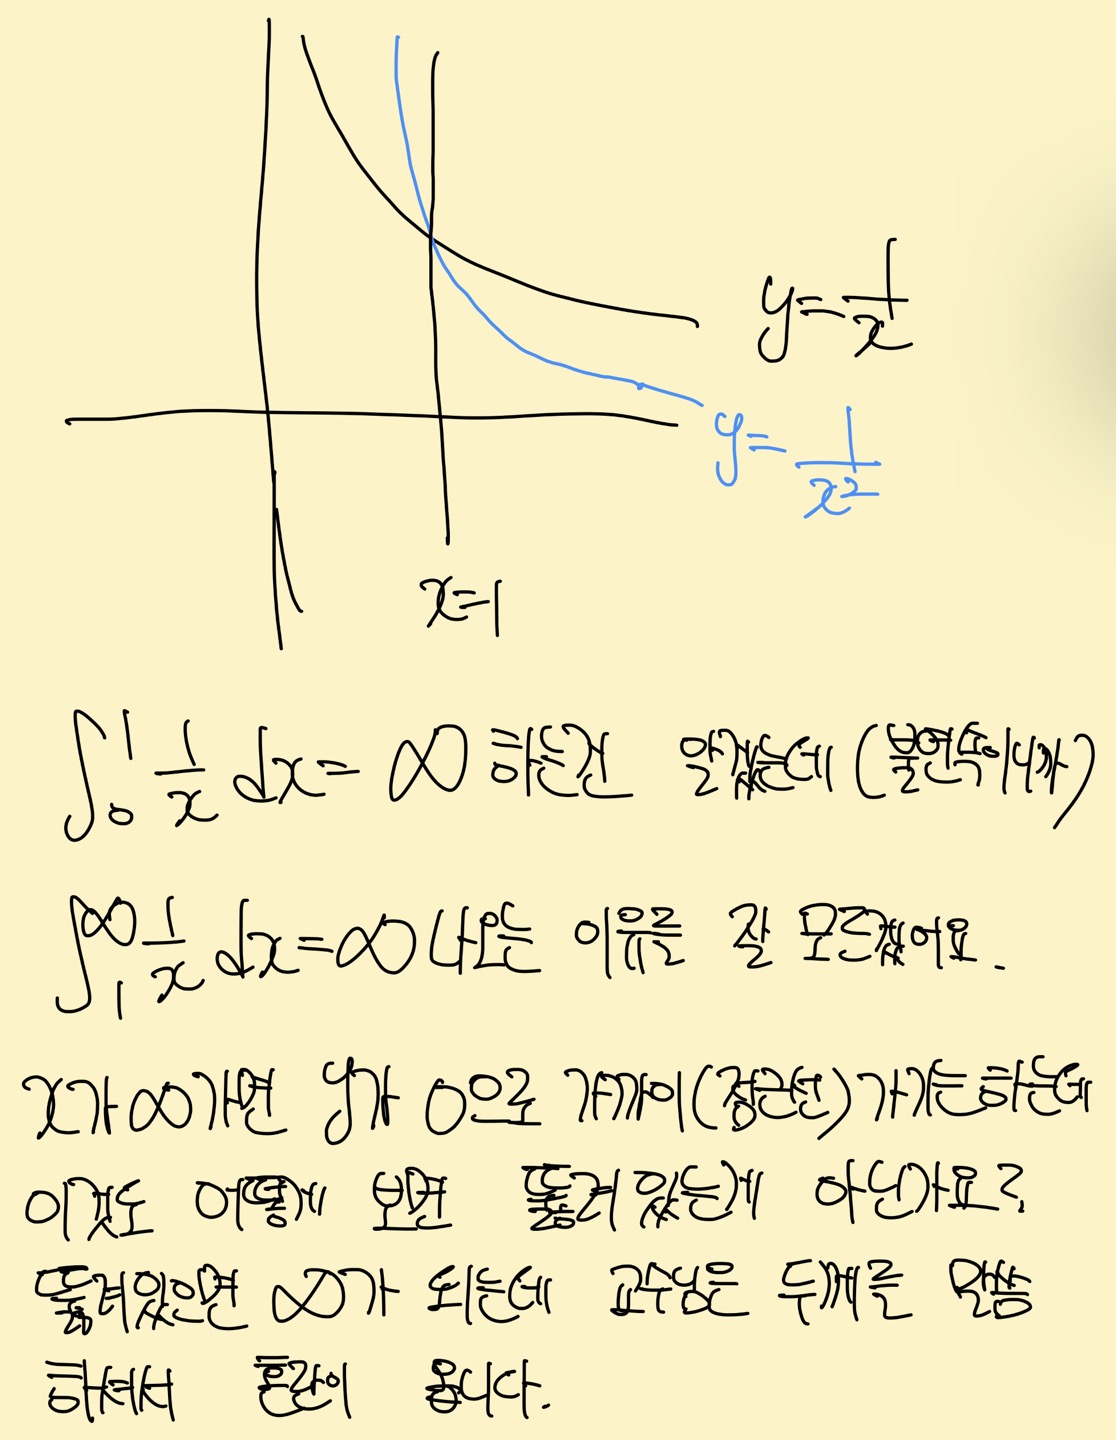 y=1/x
y=1/x²
x=1
∫₀¹ 1/x dx = ∞ 하는건 알겠는데 (불연속이니까)
∫₁^∞ 1/x dx = ∞ 나오는 이유를 잘 모르겠어요.
x가 ∞가면 y가 0으로 가까이(점근선) 가기는하는데
이것도 어떻게 보면 뚫려있는게 아닌가요?
뚫려있으면 ∞가 되는데 교수님은 두께를 말씀
하셔서 혼란이 옵니다.